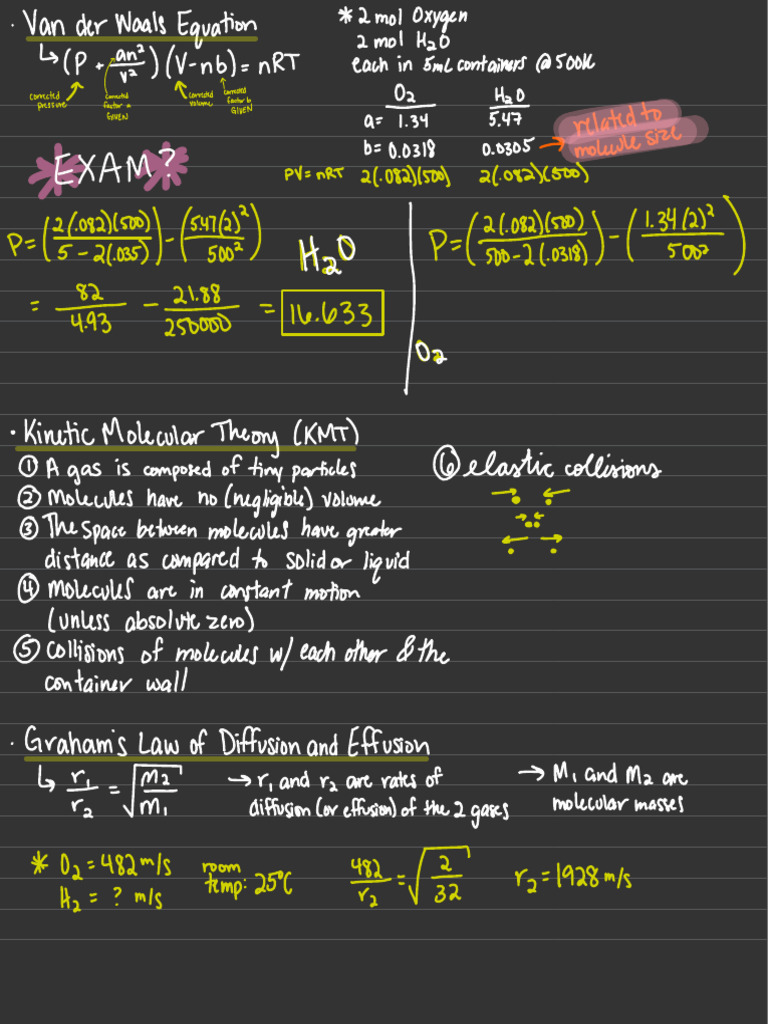 · Van der Waals Equation
↳ (P + an²/v²) (V-nb) = nRT
corrected pressure
corrected factor a GIVEN
corrected volume
corrected factor b GIVEN
* 2 mol Oxygen
2 mol H₂O
each in 5ml containers @ 500K
O₂ H₂O
a= 1.34 5.47
b= 0.0318 0.0305 → related to
molecule size
PV=nRT 2(.082)(500) 2(.082)(500)
EXAM?
P= (2(.082)(500)/5-2(.035)) - (5.47(2)²/500²) H₂O
= 82/4.93 - 21.88/250000 = 16.633
P= (2(.082)(500)/500-2(.0318)) - (1.34(2)²/500²)
O₂
· Kinetic Molecular Theory (KMT)
① A gas is composed of tiny particles
② Molecules have no (negligible) volume
③ The space between molecules have greater
distance as compared to solid or liquid
④ Molecules are in constant motion
(unless absolute zero)
⑤ Collisions of molecules w/ each other & the
container wall
⑥ elastic collisions
· Graham's Law of Diffusion and Effusion
↳ r₁/r₂ = √(M₂/M₁)
→ r₁ and r₂ are rates of
diffusion (or effusion) of the 2 gases
→ M₁ and M₂ are
molecular masses
* O₂ = 482 m/s
H₂ = ? m/s
room
temp: 25°C
482/r₂ = √(2/32)
r₂ = 1928 m/s